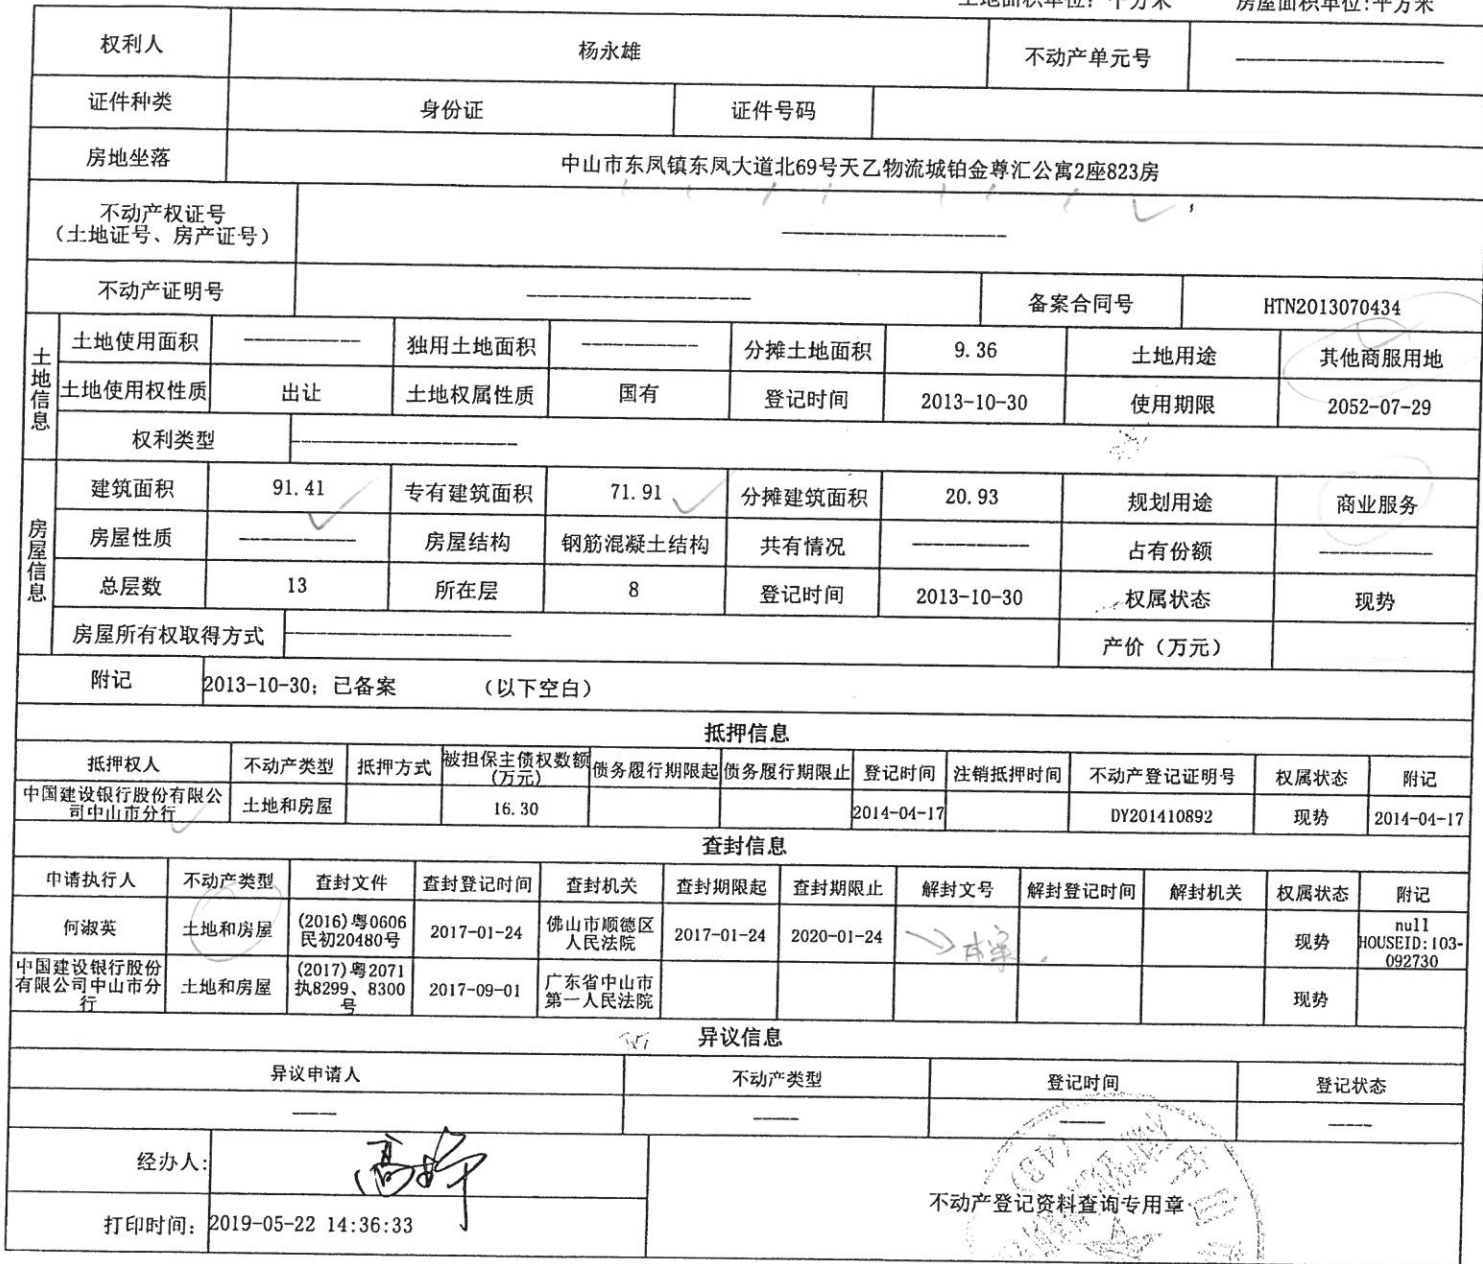 土地面积单位：平方米 房屋面积单位:平方米
权利人 杨永雄 不动产单元号 ——————
证件种类 身份证 证件号码
房地坐落 中山市东凤镇东凤大道北69号天乙物流城铂金尊汇公寓2座823房
不动产权证号
（土地证号、房产证号） ——————
不动产证明号 —————— 备案合同号 HTN2013070434
土地信息
土地使用面积 —————— 独用土地面积 —————— 分摊土地面积 9.36 土地用途 其他商服用地
土地使用权性质 出让 土地权属性质 国有 登记时间 2013-10-30 使用期限 2052-07-29
权利类型 ——————
房屋信息
建筑面积 91.41 专有建筑面积 71.91 分摊建筑面积 20.93 规划用途 商业服务
房屋性质 —————— 房屋结构 钢筋混凝土结构 共有情况 —————— 占有份额 ——————
总层数 13 所在层 8 登记时间 2013-10-30 权属状态 现势
房屋所有权取得方式 —————— 产价（万元）
附记 2013-10-30; 已备案 （以下空白）
抵押信息
抵押权人 不动产类型 抵押方式 被担保主债权数额(万元) 债务履行期限起 债务履行期限止 登记时间 注销抵押时间 不动产登记证明号 权属状态 附记
中国建设银行股份有限公司中山市分行 土地和房屋 16.30 2014-04-17 DY201410892 现势 2014-04-17
查封信息
申请执行人 不动产类型 查封文件 查封登记时间 查封机关 查封期限起 查封期限止 解封文号 解封登记时间 解封机关 权属状态 附记
何淑英 土地和房屋 (2016)粤0606民初20480号 2017-01-24 佛山市顺德区人民法院 2017-01-24 2020-01-24 现势 null HOUSEID:103-092730
中国建设银行股份有限公司中山市分行 土地和房屋 (2017)粤2071执8299、8300号 2017-09-01 广东省中山市第一人民法院 现势
异议信息
异议申请人 不动产类型 登记时间 登记状态
—— —— —— ——
经办人:
打印时间: 2019-05-22 14:36:33
不动产登记资料查询专用章